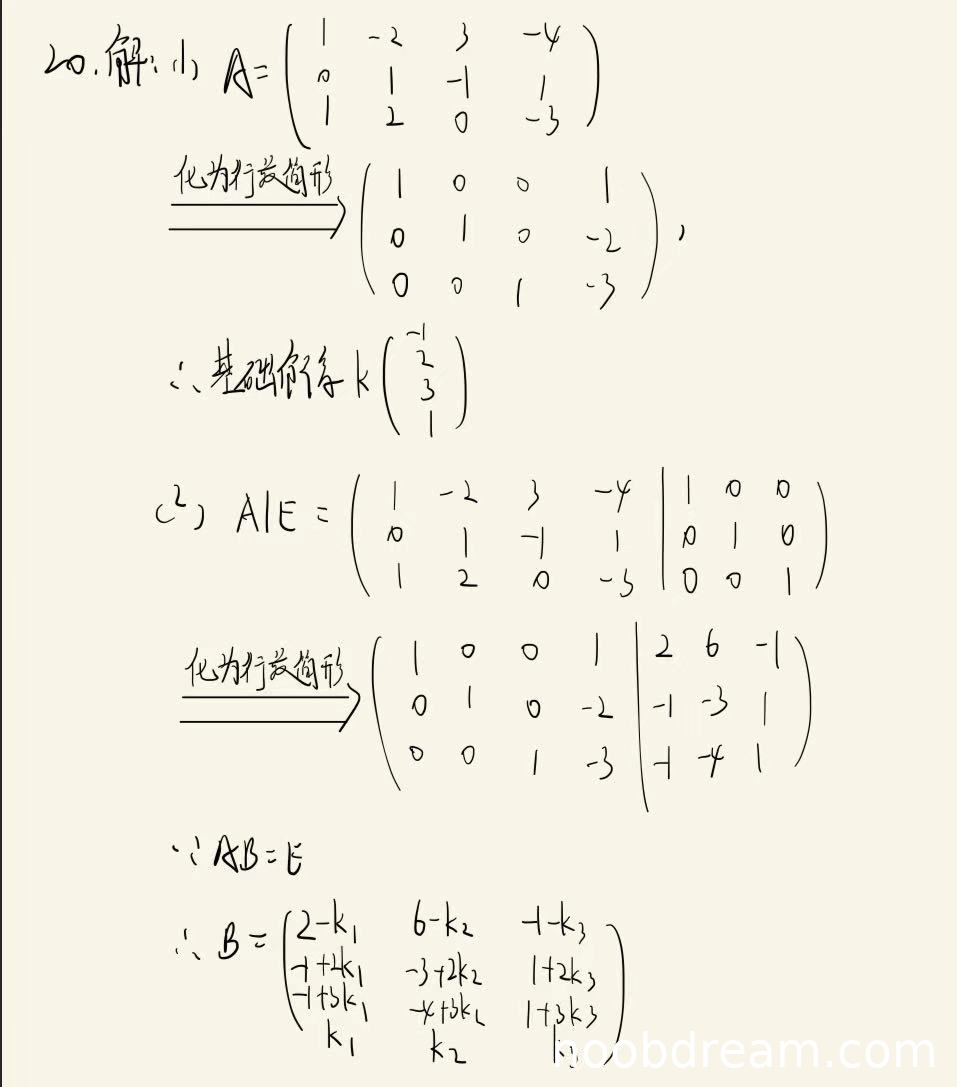 20.解:(1) A= ( 1 -2 3 -4
0 1 -1 1
1 2 0 -3 )
化为行最简形 ( 1 0 0 1
0 1 0 -2
0 0 1 -3 ),
∴基础解系 k ( -1
2
3
1 )
(2) A|E = ( 1 -2 3 -4 | 1 0 0
0 1 -1 1 | 0 1 0
1 2 0 -3 | 0 0 1 )
化为行最简形 ( 1 0 0 1 | 2 6 -1
0 1 0 -2 | -1 -3 1
0 0 1 -3 | -1 -4 1 )
∵AB=E
∴ B = ( 2-k₁ 6-k₂ -1-k₃
-1+2k₁ -3+2k₂ 1+2k₃
-1+3k₁ -4+3k₂ 1+3k₃
k₁ k₂ k₃ )
noobdream.com